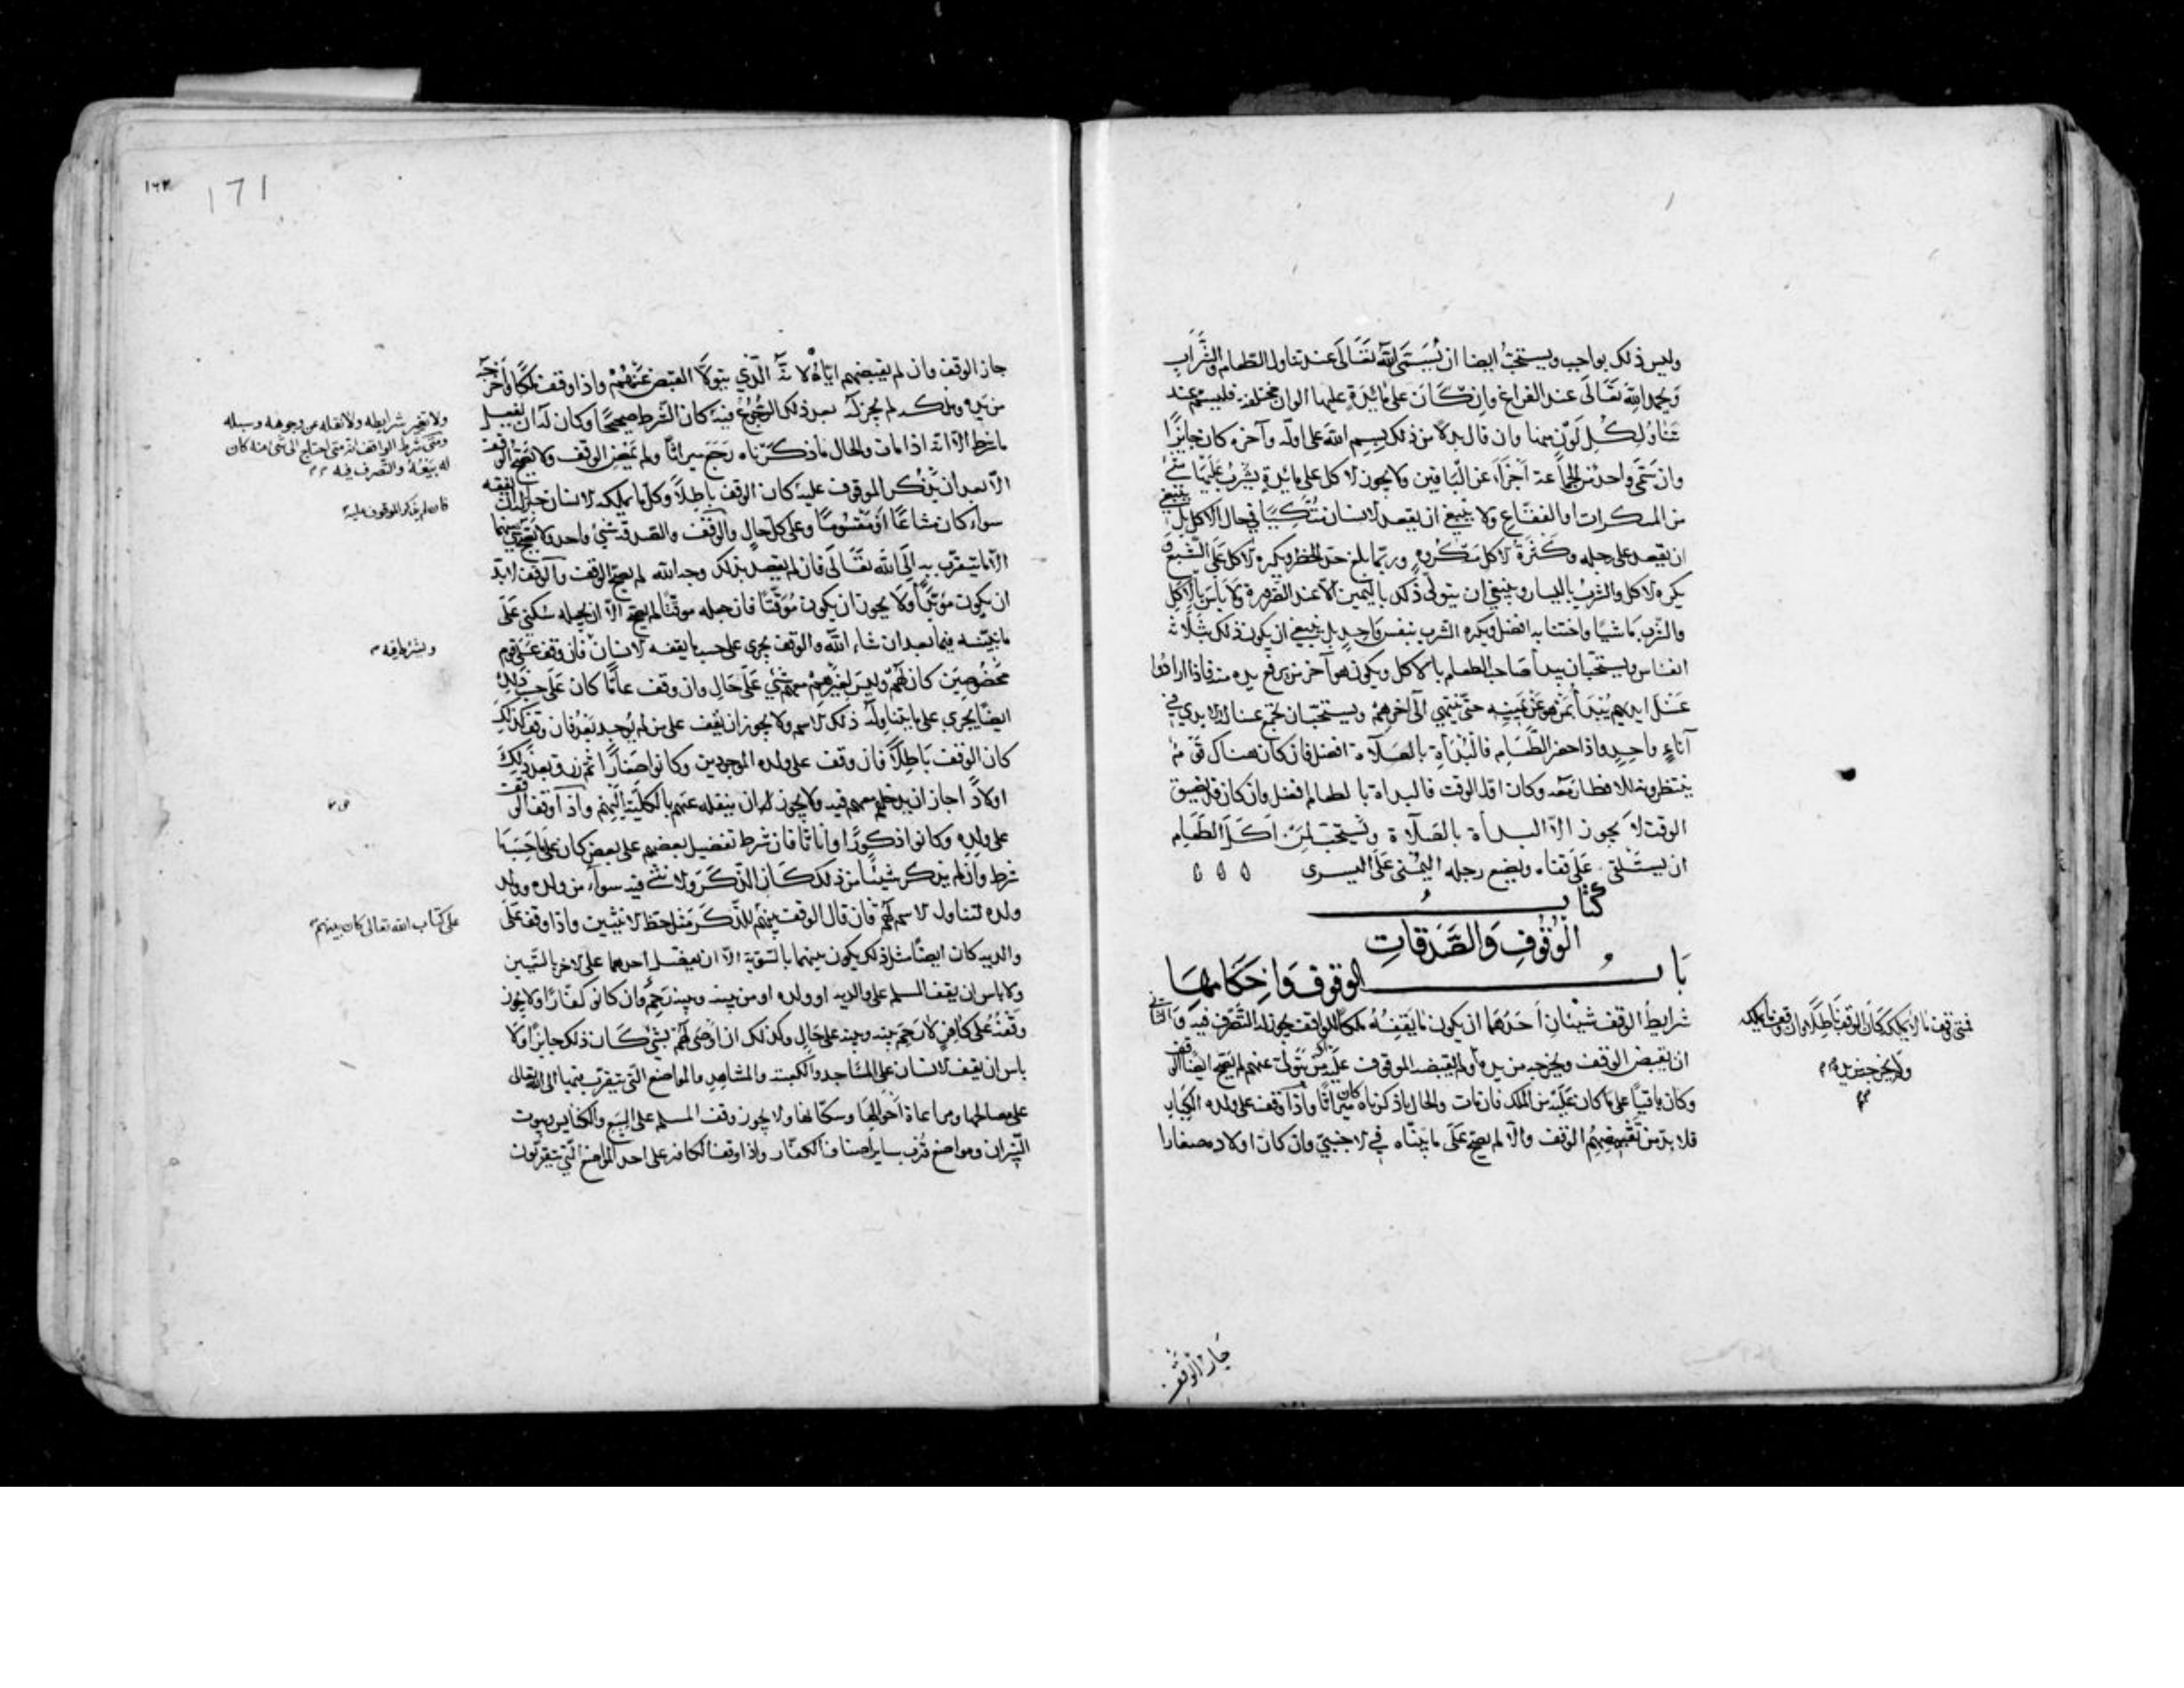 وليس ذلك بواجب ويستحبّ ايضا ان يُسَمَّى الله تَعَالَى عند تناول الطعام والشَّراب
وَيحمد الله تَعَالَى عند الفراغ وان كَانَ على مائدةٍ عليها الوان مختلفة فليسمّ عند
تَنَاوُلِ كُلِّ لَوْنٍ منها وان قال بدلاً من ذلك بسم الله على اوّله وآخره كان جايزًا
وان سَمَّى واحد من الجماعة اَجْزَأَ عن الباقين ولا يجوز الاكل على مائدةٍ يشرب عَلَيْهَا شئ
من المسكرات او الفقّاع ولا ينبغي ان يقعد الانسان مُتَّكِيًا في حال الاكل بل ينبغي
ان يقعد على رجله وكَثرَةُ الاكل مَكروه وربّما بلغ حدّ الحظر ويكره الاكل عَلَى الشّبع وَ
يكره الاكل والشرب باليسار وينبغي ان يتولّى ذلك باليمين الّا عند الضّرورة وَلا بَأسَ بالاكل
والشرب مَاشيًا واجتنابه افضل ويكره الشرب بنفس وَاحدٍ بل ينبغي ان يكون ذلك بثَلاثة
انفاس ويستحبّ ان يبدأ صَاحب الطعام بالاكل ويكون هو آخر من يرفع يده منه فاذا ارادوا
غَسْلَ ايديهم يُبْدَأ بمَن هو عَن يَمينِه حتّى ينتهي الى آخرهمْ ويستحبّ ان تجمع غسالة الايدي في
آناءٍ واحدٍ واذا حضر الطَّعَام فالبُدأة بالصَلاة افضل فان كان هناك قَومُ
ينتظرونه للافطار مَعَه وكان اوّل الوقت فالبدأة بالطعام افضل وان كان قد تضيق
الوقت لا يجوز الّا البدأة بالصَلاة ويُستحبّ لمَن اَكَلَ الطَعَام
ان يستَلقي عَلَى قفاه ويضع رجله اليُمنى عَلَى اليسرى
كتابُ
الْوُقُوفِ وَالصَّدَقَاتِ
بَابُ الوقوف وَاَحكَامهَا
شرايط الوقف شيئان اَحَدهما ان يكون مَا يَقفُهُ ملكًا للواقف يجوز له التَّصَرّف فيه وَالثاني
ان يقبض الوقف ويخرجه من يده ولم يقبضه الموقوف عَلَيه او مَن يَتولّى عنهم لم يَصِحّ ايضا الوقف
وكان باقيًا على مَا كان عَلَيه من الملك فان مات والحال ما ذكرناه كان ميراثًا واذا وقف على ولده الكِبَار
فلا بدّ من تقبيضِهِمُ الوقف والّا لم يصحّ عَلَى ما بيّنّاه في الاجنبيّ وان كان اولاده صغارا
فمتى وقف ما لا يملكه كان الوقف باطلاً وان وقف ما يملكه
ولم يخرجه من يده
جَاز الْوَقف
١٦٢
171
جاز الوقف وان لم يقبضهم ايّاهُ لانّه الّذي يتولّا القبض عَنهُمْ واذا وقف مُلكًا وأخرجَه
من يده وملكه لم يجز له بعد ذلك الرّجُوعُ فيه كان الشّرط صحيحًا وكان له ان يفعل
ما شرط الّا انّه اذا مات والحال مَا ذكَرناه رَجَعَ ميراثًا ولم يمض الوقف ولا يَصِحّ الوقف
الّا بعد ان يَذكُر الموقوف عليه كان الوقف باطلاً وكلّ ما يملكه الانسان جاز له وقفه
سواء كان مشاعًا اَو مَقسُومًا وعلى كلّ حالٍ والوَقْفُ والصدقَة شئ واحد ولا يصِحّ شئ منهما
الّا ما يتقرّب به اِلَى الله تعَالَى فان لم يقصد بذلك وجه الله لم يصحّ الوقف والوقف لا بدّ
ان يكون مؤبّدًا ولا يجوز ان يكون مُوَقّتًا فان جعله موقّتًا لم يصحّ الّا ان يجعله سُكنى عَلَى
ما نبيّنه فيما بعد ان شاء الله والوقف يجري على حسب ما يقفه الانسان فان وقف عَلَى قوم
مخصُوصِين كان لَهُمْ وليسَ لغَيرهِمْ معهم شئٌ عَلَى حَالٍ وان وقف عامًّا كان عَلَى حسب ذلك
ايضًا يجري على ما يتناوله ذلك الاسم ولا يجوز ان يقف على من لم يُوجد بَعدُ فان وقف كذلك
كان الوقف بَاطلاً فان وقف على ولده الموجودين وكانوا صغَارًا ثم رزق بعد ذلك
اولادًا جاز ان يدخلهم معهم فيه ولا يجوز له ان ينقله عنهم بالكلّيّة اليهم واذا وقف الوقف
على ولده وكانوا ذكورًا واناثا فان شرط تفضيل بعضهم على بعض كان على حسب مَا
شرط وان لم يذكر شيئًا من ذلك كَان الذّكَرَ والانثى فيه سواءً من ولده وولد
ولده لتناول الاسم لهم فان قال الوقف بينهم للذّكَر مثل حظّ الانثيين واذا وقف عَلَى
والديه كان ايضًا مثل ذلك يكون بينهما بالسّويّة الّا ان يفضل احدهما على الاخر بالتّعيين
ولا باس ان يقف المسلم على والديه او ولده او من بينه وبينه رَحِمٌ وان كانوا كفّارًا ولا يجوز
وقْفُهُ على كافرٍ لا رَحِمَ بينه وبينه على حَالٍ وكذلك ان اَوصَى لَهُم بشئٍ كَان ذلك جايزًا ولا
باس ان يقف الانسان على المسَاجد والكعبة والمشاهد والمواضع التّى يتقرّب فيها الى الله تعَالى
على مصالحها ومراعاة اَحْوالِها وسكّانها ولا يجوز وقف المسلم على البِيَع والكنايس وبيوت
النّيران ومواضع قُرَب ساير اصناف الكفّار واذا وقف الكافر على احد المواضع الّتي يتقرّبُون
ولا تغير شرايطه ولا نقله عن وجوهه وسبله
ومتى شرط الواقف انه متى احتاج الى شئ منه كان
له بَيْعُهُ والتّصرف فيه
فان لم يذكر الموقوف عليه
وبشرط فيه
على كتاب الله تعالى كان بينهم